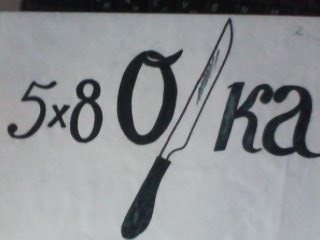 5x8 О ка